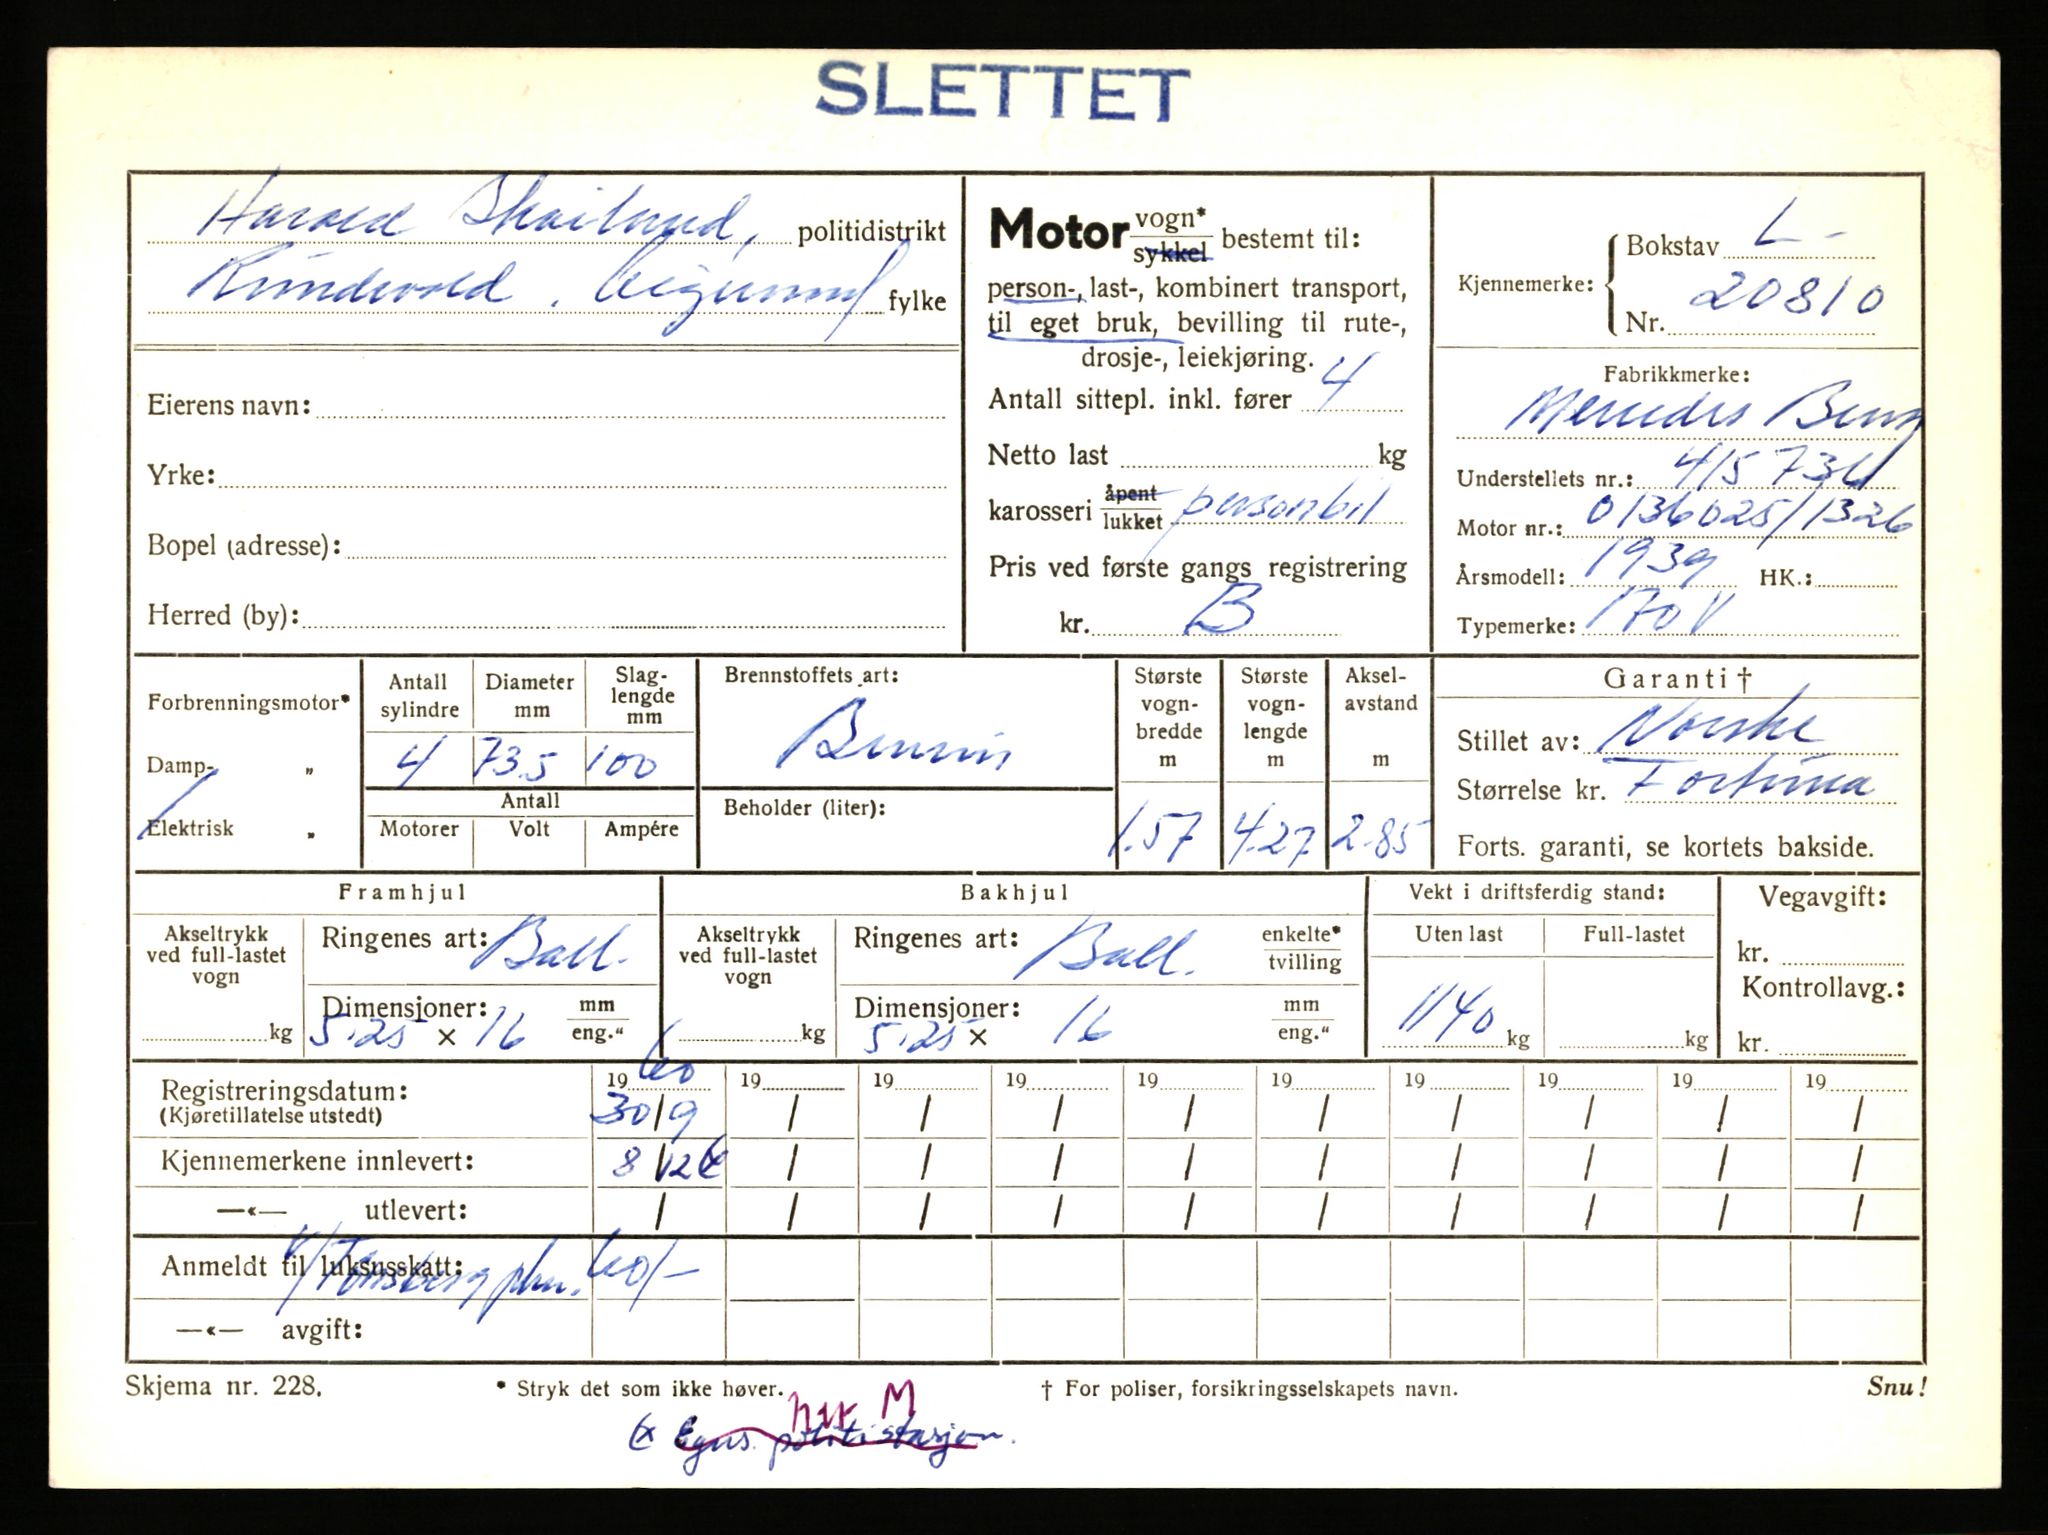 SLETTET
Harald Skailund, politidistrikt
Rundvold, Eigersund fylke
Eierens navn:
Yrke:
Bopel (adresse):
Herred (by):
Motor vogn* sykkel bestemt til:
person-, last-, kombinert transport,
til eget bruk, bevilling til rute-,
drosje-, leiekjøring.
Antall sittepl. inkl. fører 4
Netto last kg
karosseri åpent lukket personbil
Pris ved første gangs registrering
kr. B
Kjennemerke: Bokstav L-
Nr. 20810
Fabrikkmerke:
Mercedes Benz
Understellets nr.: 415734
Motor nr.: 0136025/1326
Årsmodell: 1939 HK.:
Typemerke: 170 V
Forbrenningsmotor*
Damp- „
Elektrisk „
Antall sylindre
4
Diameter mm
73.5
Slag-
lengde
mm
100
Antall
Motorer Volt Ampére
Brennstoffets art:
Bensin
Beholder (liter):
Største
vogn-
bredde
m
1.57
Største
vogn-
lengde
m
4.27
Aksel-
avstand
m
2.85
Garanti †
Stillet av: Norske
Størrelse kr. Fortuna
Forts. garanti, se kortets bakside.
Framhjul
Akseltrykk
ved full-lastet
vogn
kg
Ringenes art: Ball.
Dimensjoner: mm
5.25 × 16 eng."
Bakhjul
Akseltrykk
ved full-lastet
vogn
kg
Ringenes art: Ball. enkelte* tvilling
Dimensjoner: mm
5.25 × 16 eng."
Vekt i driftsferdig stand:
Uten last Full-lastet
1140 kg kg
Vegavgift:
kr.
Kontrollavg.:
kr.
Registreringsdatum: 19 60 19 19 19 19 19 19 19 19 19
(Kjøretillatelse utstedt) 30/9 / / / / / / / / /
Kjennemerkene innlevert: 8/12 / / / / / / / / /
—«— utlevert: / / / / / / / / / /
Anmeldt til luksusskatt:
v/Tønsberg pkm. 60/-
—«— avgift:
Skjema nr. 228. * Stryk det som ikke høver. † For poliser, forsikringsselskapets navn. Snu!
M
(x Egers. politistasjon.